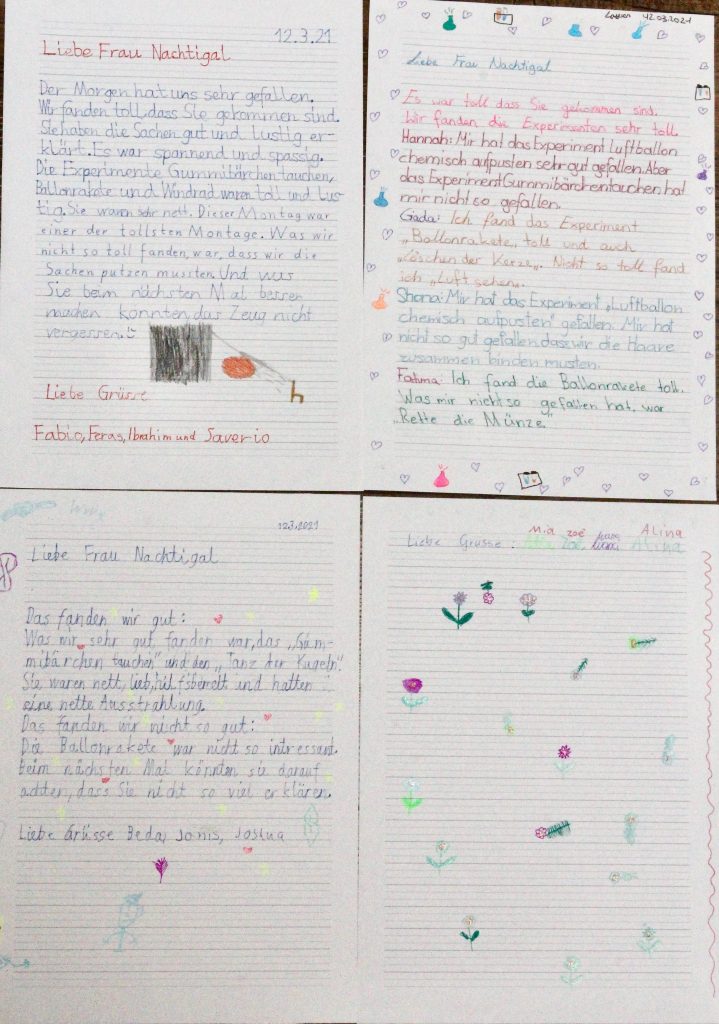 12.3.21
Liebe Frau Nachtigal
Der Morgen hat uns sehr gefallen.
Wir fanden toll, dass Sie gekommen sind.
Sie haben die Sachen gut und lustig er-
klärt. Es war spannend und spassig.
Die Experimente Gummibärchen tauchen,
Ballonrakete und Windrad waren toll und lus-
tig. Sie waren sehr nett. Dieser Montag war
einer der tollsten Montage. Was wir
nicht so toll fanden, war, dass wir die
Sachen putzen mussten. Und was
Sie beim nächsten Mal besser
machen könnten, das Zeug nicht
vergessen.
Liebe Grüsse
Fabio, Feras, Ibrahim und Saverio
12.03.2021
Liebe Frau Nachtigal
Es war toll dass Sie gekommen sind.
Wir fanden die Experimenten sehr toll.
Hannah: Mir hat das Experiment Luftballon
chemisch aufpusten sehr gut gefallen. Aber
das Experiment Gummibärchentauchen hat
mir nicht so gefallen.
Giada: Ich fand das Experiment
„Ballonrakete„ toll und auch
„Löschen der Kerze„. Nicht so toll fand
ich „Luft sehen„.
Shana: Mir hat das Experiment „Luftballon
chemisch aufpusten" gefallen. Mir hat
nicht so gut gefallen, dass wir die Haare
zusammen binden musten.
Fatma: Ich fand die Ballonrakete toll.
Was mir nicht so gefallen hat, war
„Rette die Münze."
12.3.2021
Liebe Frau Nachtigal
Das fanden wir gut:
Was mir sehr gut fanden war, das „Gum-
mibärchen tauchen" und den „Tanz der Kugeln".
Sie waren nett, lieb, hilfsbereit und hatten
eine nette Ausstrahlung.
Das fanden wir nicht so gut:
Die Ballonrakete war nicht so intressant.
Beim nächsten Mal könnten sie darauf
achten, dass Sie nicht so viel erklären.
Liebe Grüsse Beda, Jonis, Joshua
Mia Zoé Alina
Liebe Grüsse: Zoé, Alina